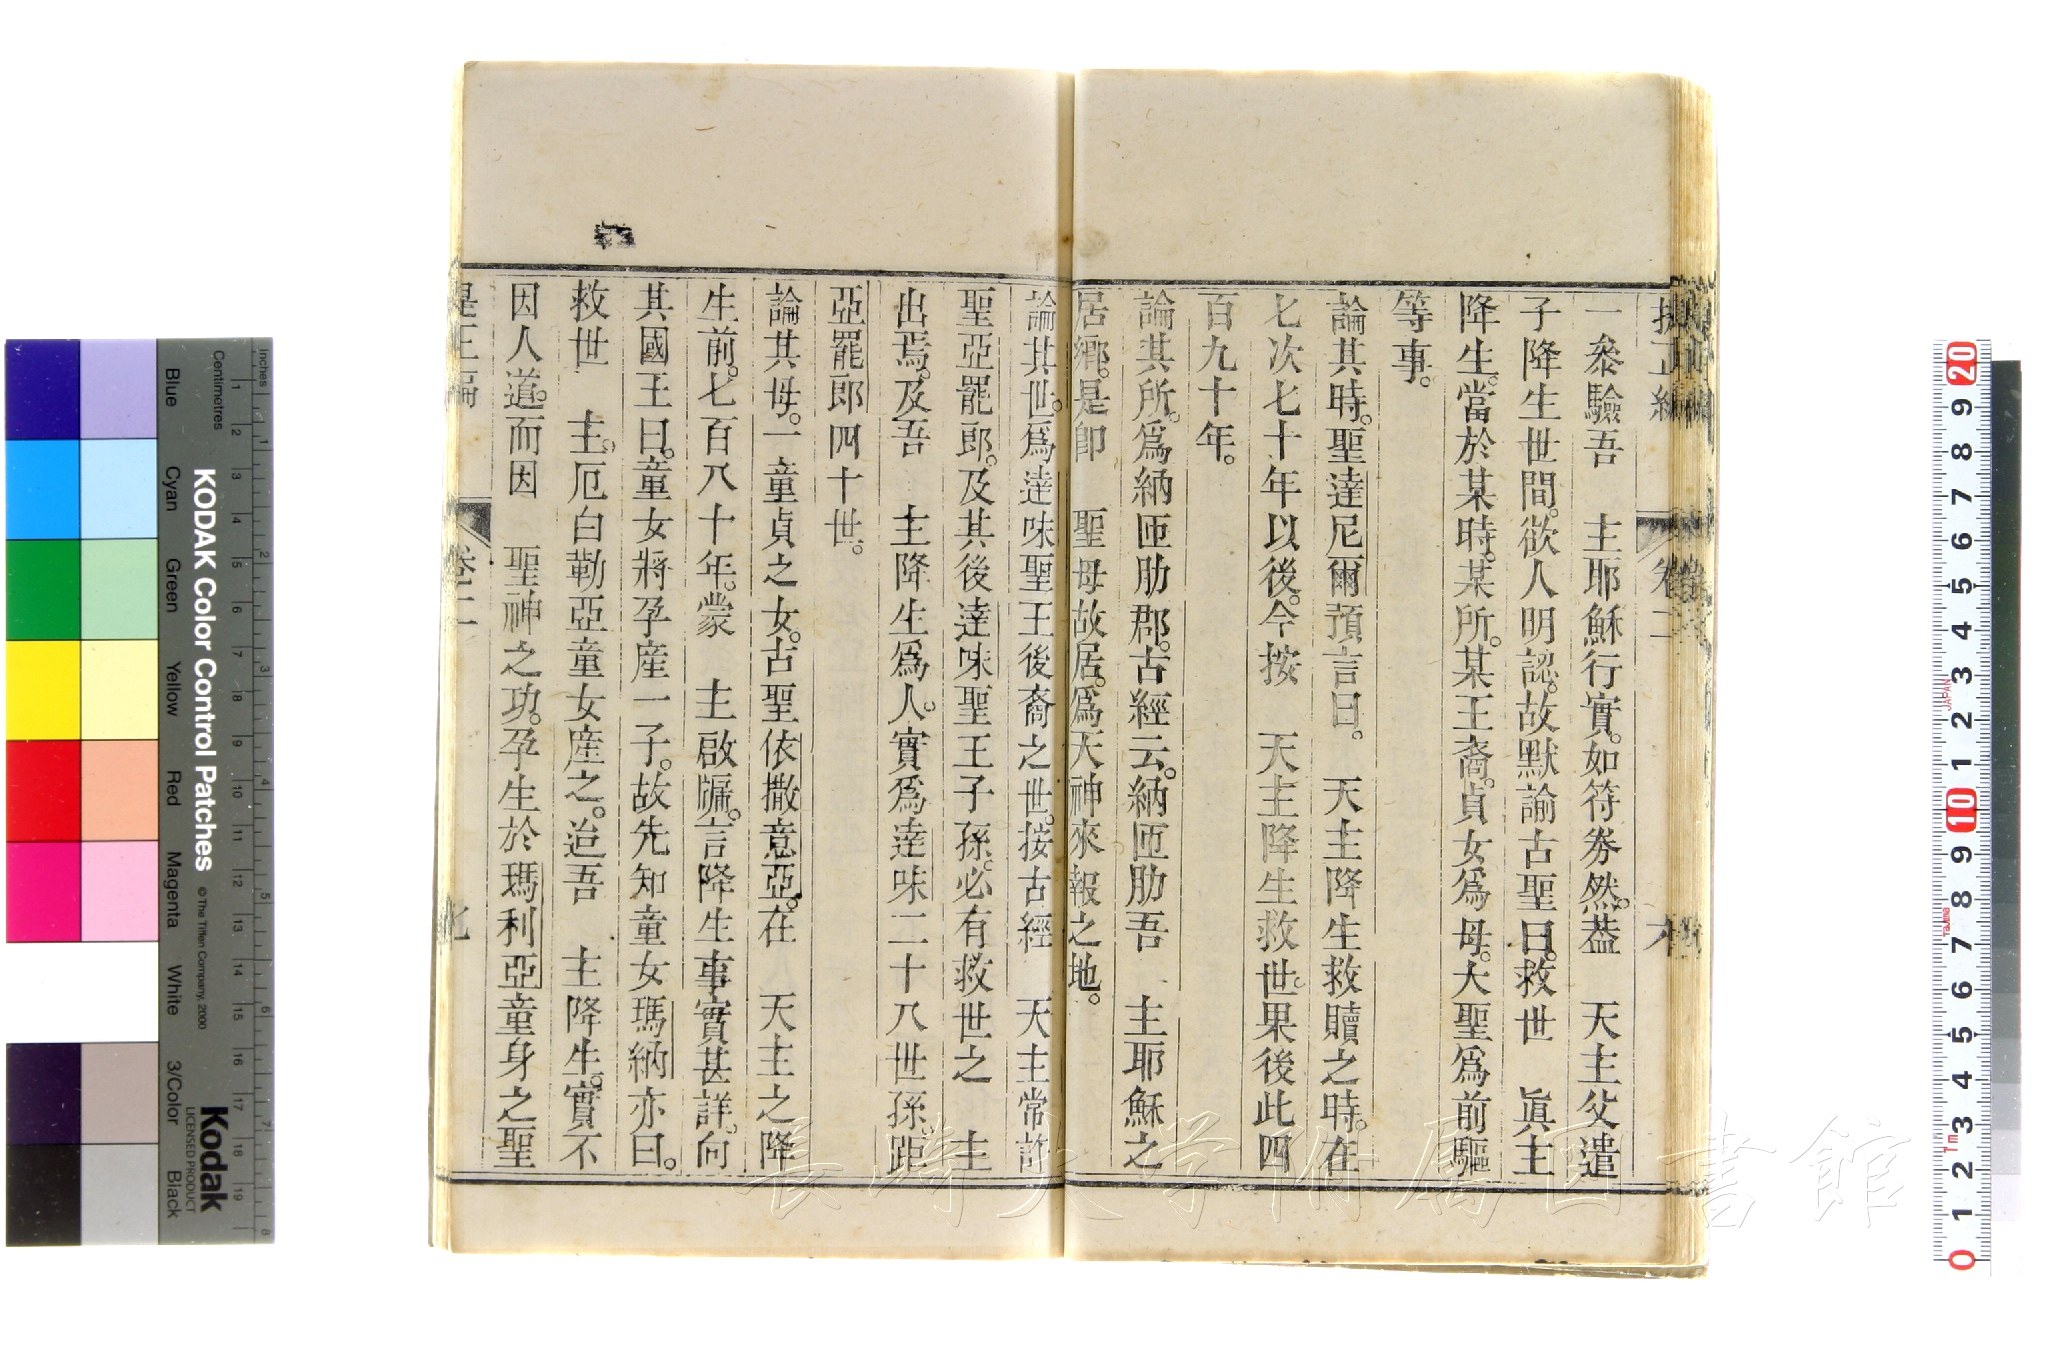 一叅驗吾　主耶穌行實。如符券然。葢　天主父遣
子降生世間。欲人明認。故默諭古聖曰。救世　眞主
降生。當於某時。某所。某王裔。貞女爲母。大聖爲前驅
等事。
論其時。聖達尼爾預言曰。　天主降生救贖之時。在
七次七十年以後。今按　天主降生救世。果後此四
百九十年。
論其所。爲納匝肋郡。古經云。納匝肋吾　主耶穌之
居鄕。是卽　聖母故居。爲天神來報之地。
論其世。爲達味聖王後裔之世。按古經　天主常許
聖亞罷郎。及其後達味聖王子孫。必有救世之　主
出焉。及吾　主降生爲人。實爲達味二十八世孫。距
亞罷郎四十世。
論其母。一童貞之女。古聖依撒意亞。在　天主之降
生前。七百八十年。蒙　主啟牖。言降生事實甚詳。向
其國王曰。童女將孕產一子。故先知童女瑪納亦曰。
救世　主。厄白勒亞童女產之。迨吾　主降生。實不
因人道。而因　聖神之功。孕生於瑪利亞童身之聖
卷二
長崎大学附属図書館
Inches
Centimetres
KODAK Color Control Patches
© The Tiffen Company, 2000
Kodak
LICENSED PRODUCT
Blue
Cyan
Green
Yellow
Red
Magenta
White
3/Color
Black
JAPAN